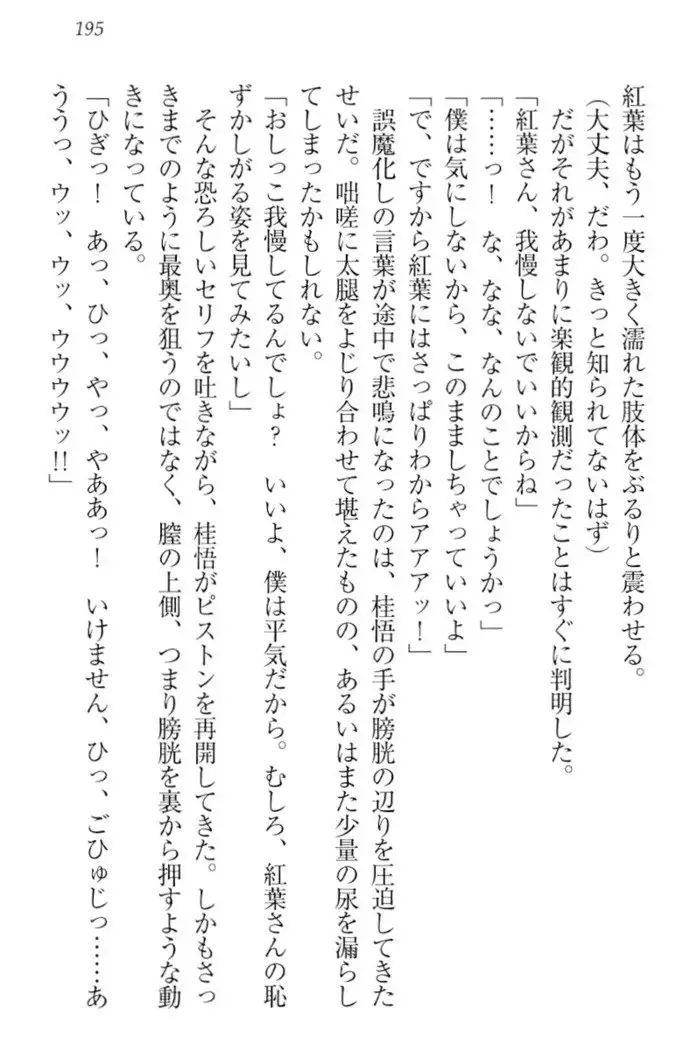 195
紅葉はもう一度大きく濡れた肢体をぶるりと震わせる。
（大丈夫、だわ。きっと知られてないはず）
だがそれがあまりに楽観的観測だったことはすぐに判明した。
「紅葉さん、我慢しないでいいからね」
「……っ！　な、なな、なんのことでしょうかっ」
「僕は気にしないから、このまましちゃっていいよ」
「で、ですから紅葉にはさっぱりわからアアアッ！」
誤魔化しの言葉が途中で悲鳴になったのは、桂悟の手が膀胱の辺りを圧迫してきた
せいだ。咄嗟に太腿をよじり合わせて堪えたものの、あるいはまた少量の尿を漏らし
てしまったかもしれない。
「おしっこ我慢してるんでしょ？　いいよ、僕は平気だから。むしろ、紅葉さんの恥
ずかしがる姿を見てみたいし」
そんな恐ろしいセリフを吐きながら、桂悟がピストンを再開してきた。しかもさっ
きまでのように最奥を狙うのではなく、膣の上側、つまり膀胱を裏から押すような動
きになっている。
「ひぎっ！　あっ、ひっ、やっ、やああっ！　いけません、ひっ、ごひゅじっ……あ
ううっ、ウッ、ウッ、ウウウウッ!!」